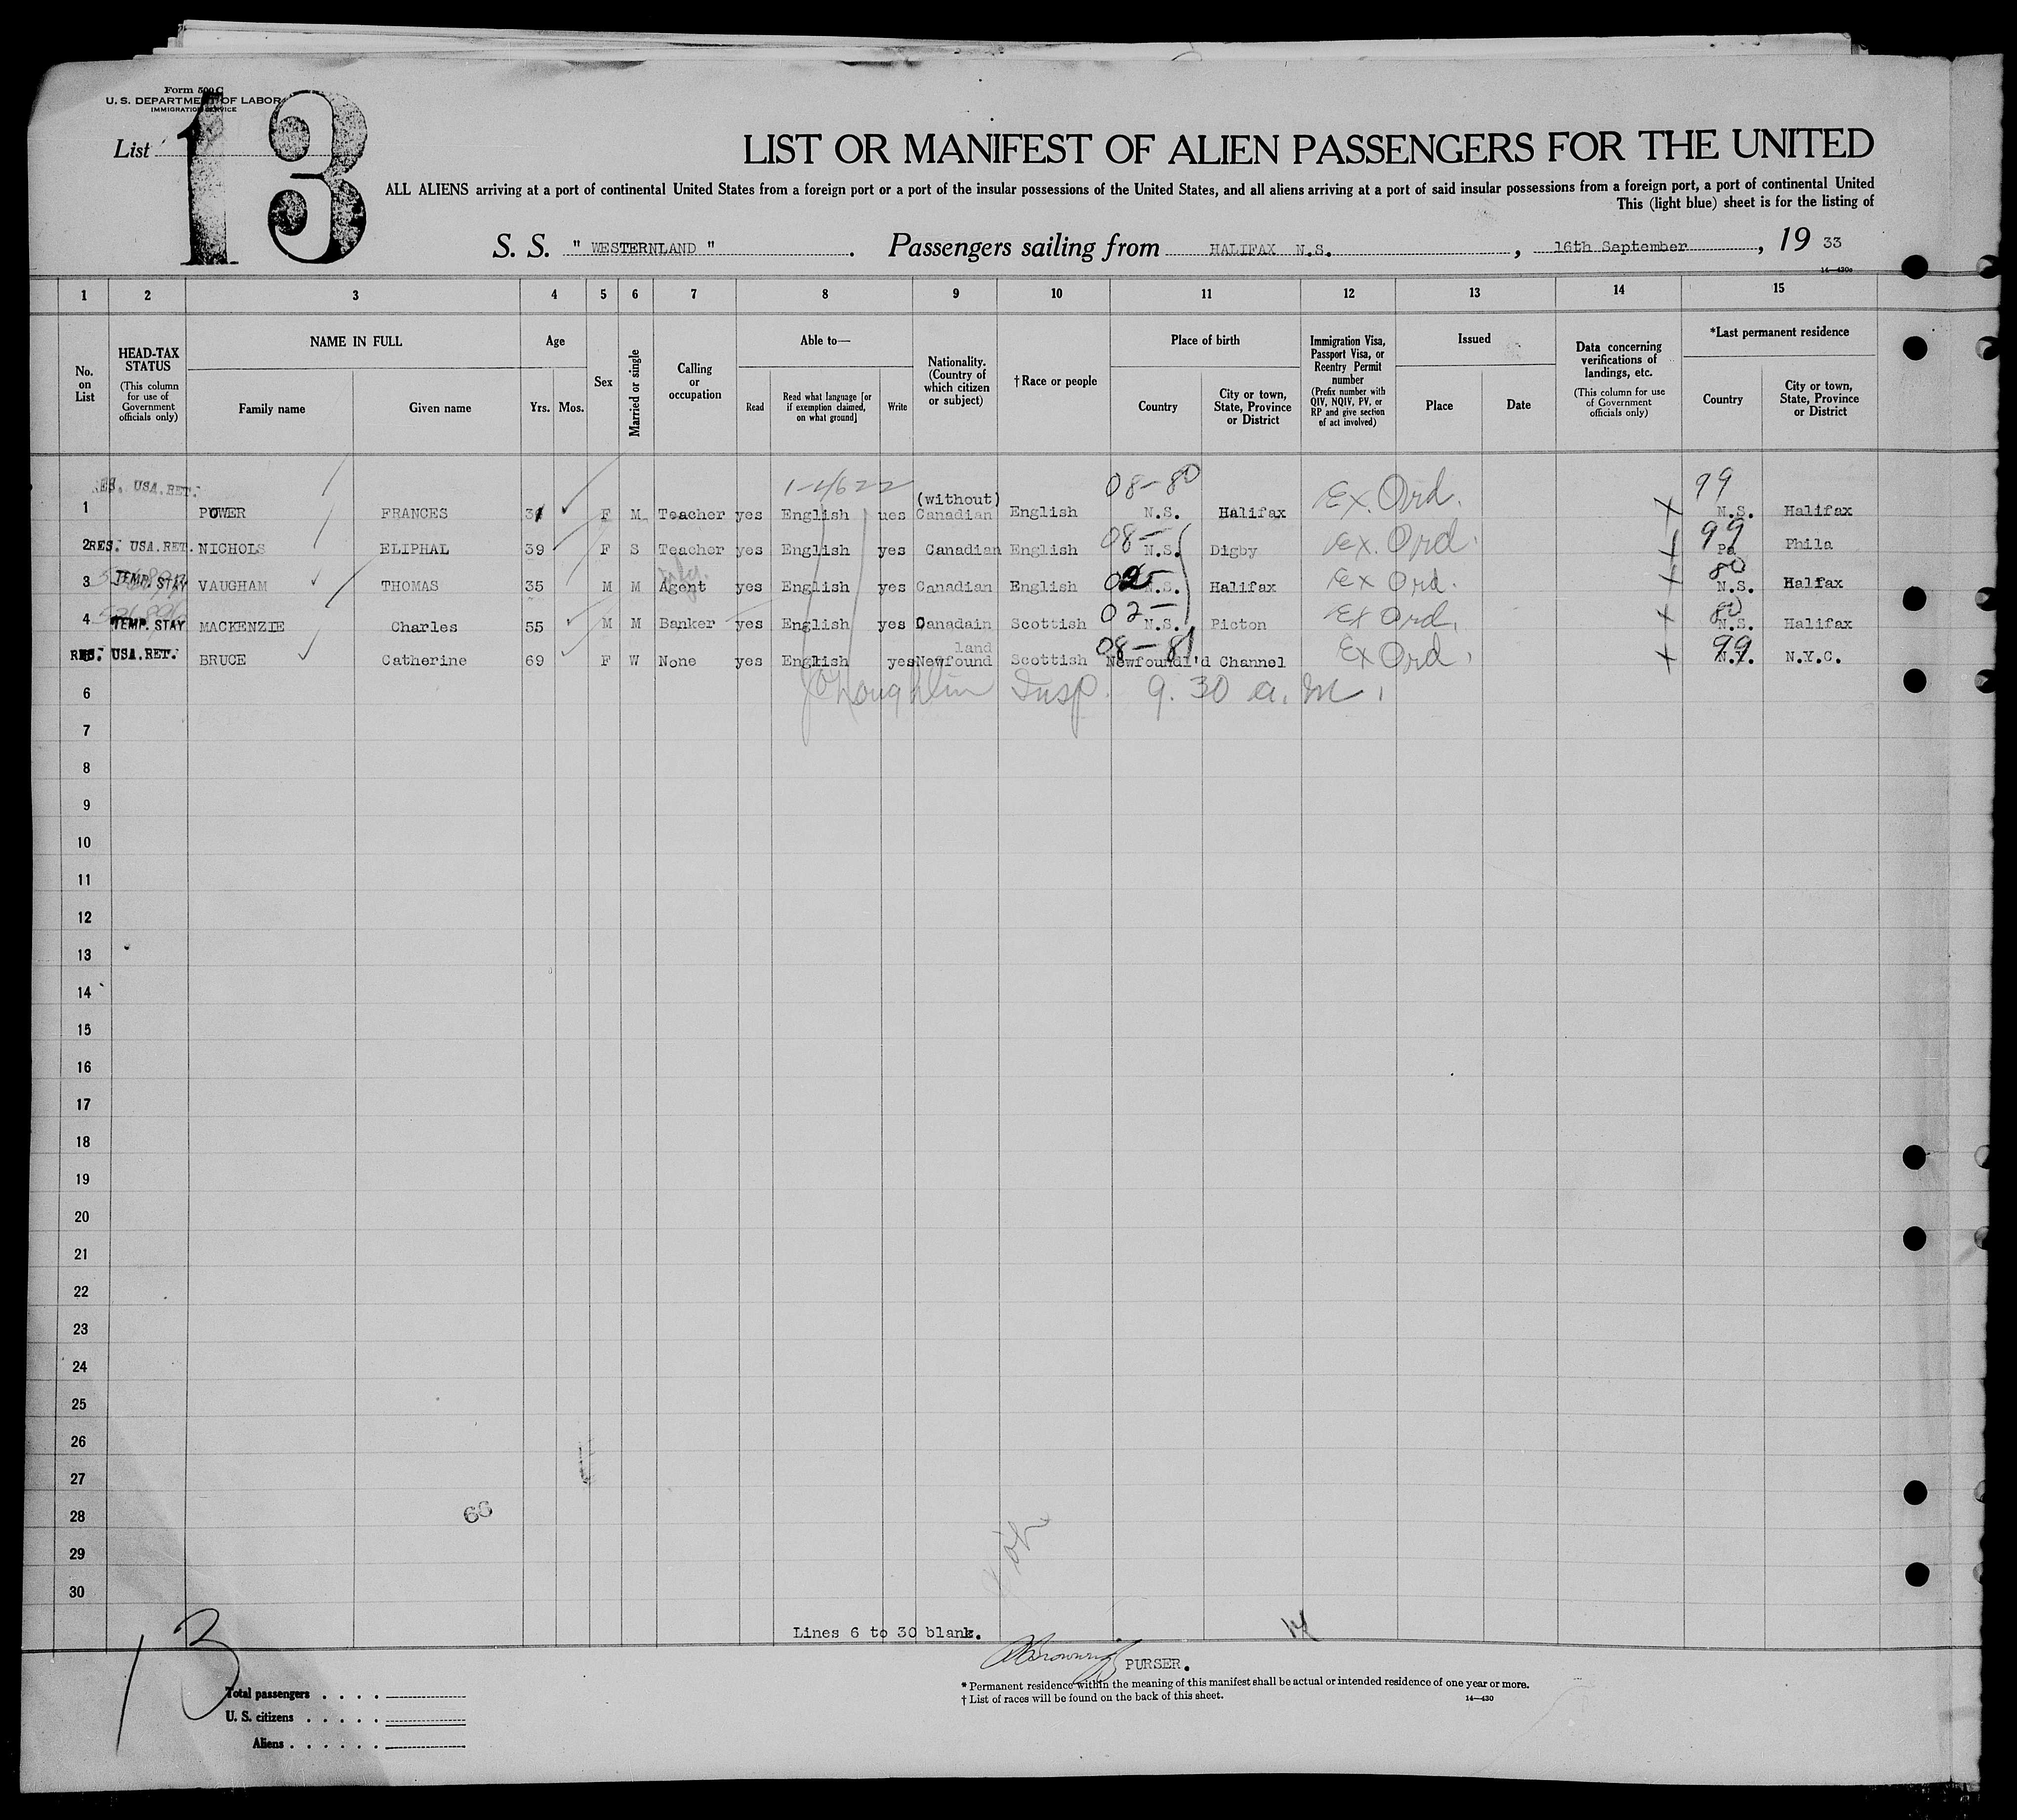 Form 500 C
U. S. DEPARTMENT OF LABOR
IMMIGRATION SERVICE
List 13
LIST OR MANIFEST OF ALIEN PASSENGERS FOR THE UNITED
ALL ALIENS arriving at a port of continental United States from a foreign port or a port of the insular possessions of the United States, and all aliens arriving at a port of said insular possessions from a foreign port, a port of continental United
This (light blue) sheet is for the listing of
S. S. " WESTERNLAND ". Passengers sailing from HALIFAX N.S., 16th September, 19 33
14—430c
1 2 3 4 5 6 7 8 9 10 11 12 13 14 15
No. on List
HEAD-TAX STATUS (This column for use of Government officials only)
NAME IN FULL
Family name Given name
Age
Yrs. Mos.
Sex
Married or single
Calling or occupation
Able to—
Read Read what language [or if exemption claimed, on what ground] Write
Nationality. (Country of which citizen or subject)
†Race or people
Place of birth
Country City or town, State, Province or District
Immigration Visa, Passport Visa, or Reentry Permit number (Prefix number with QIV, NQIV, PV, or RP and give section of act involved)
Issued
Place Date
Data concerning verifications of landings, etc. (This column for use of Government officials only)
*Last permanent residence
Country City or town, State, Province or District
RES. USA.RET. 08-80 99
(without)
1 POWER FRANCES F M Teacher yes English ues Canadian English N.S. Halifax Ex. Ord. x N.S. Halifax
2 RES. USA.RET. NICHOLS ELIPHAL 39 F S Teacher yes English yes Canadian English 08- N.S. Digby Ex. Ord. x 99 Pa Phila
3 TEMP. STAY VAUGHAM THOMAS 35 M M Agent yes English yes Canadian English N.S. Halifax Ex Ord. x 80 N.S. Halifax
4 TEMP. STAY MACKENZIE Charles 55 M M Banker yes English yes Canadain Scottish 02- N.S. Picton Ex Ord. x 80 N.S. Halifax
land
RES. USA.RET. BRUCE Catherine 69 F W None yes English yes Newfound Scottish 08-81 Newfoundl'd Channel Ex Ord. x 99 N.Y. N.Y.C.
6 Insp. 9.30 a.m.
7
8
9
10
11
12
13
14
15
16
17
18
19
20
21
22
23
24
25
26
27
28
29
30
Lines 6 to 30 blank.
PURSER.
13
Total passengers
U. S. citizens
Aliens
* Permanent residence within the meaning of this manifest shall be actual or intended residence of one year or more.
† List of races will be found on the back of this sheet.
14—430